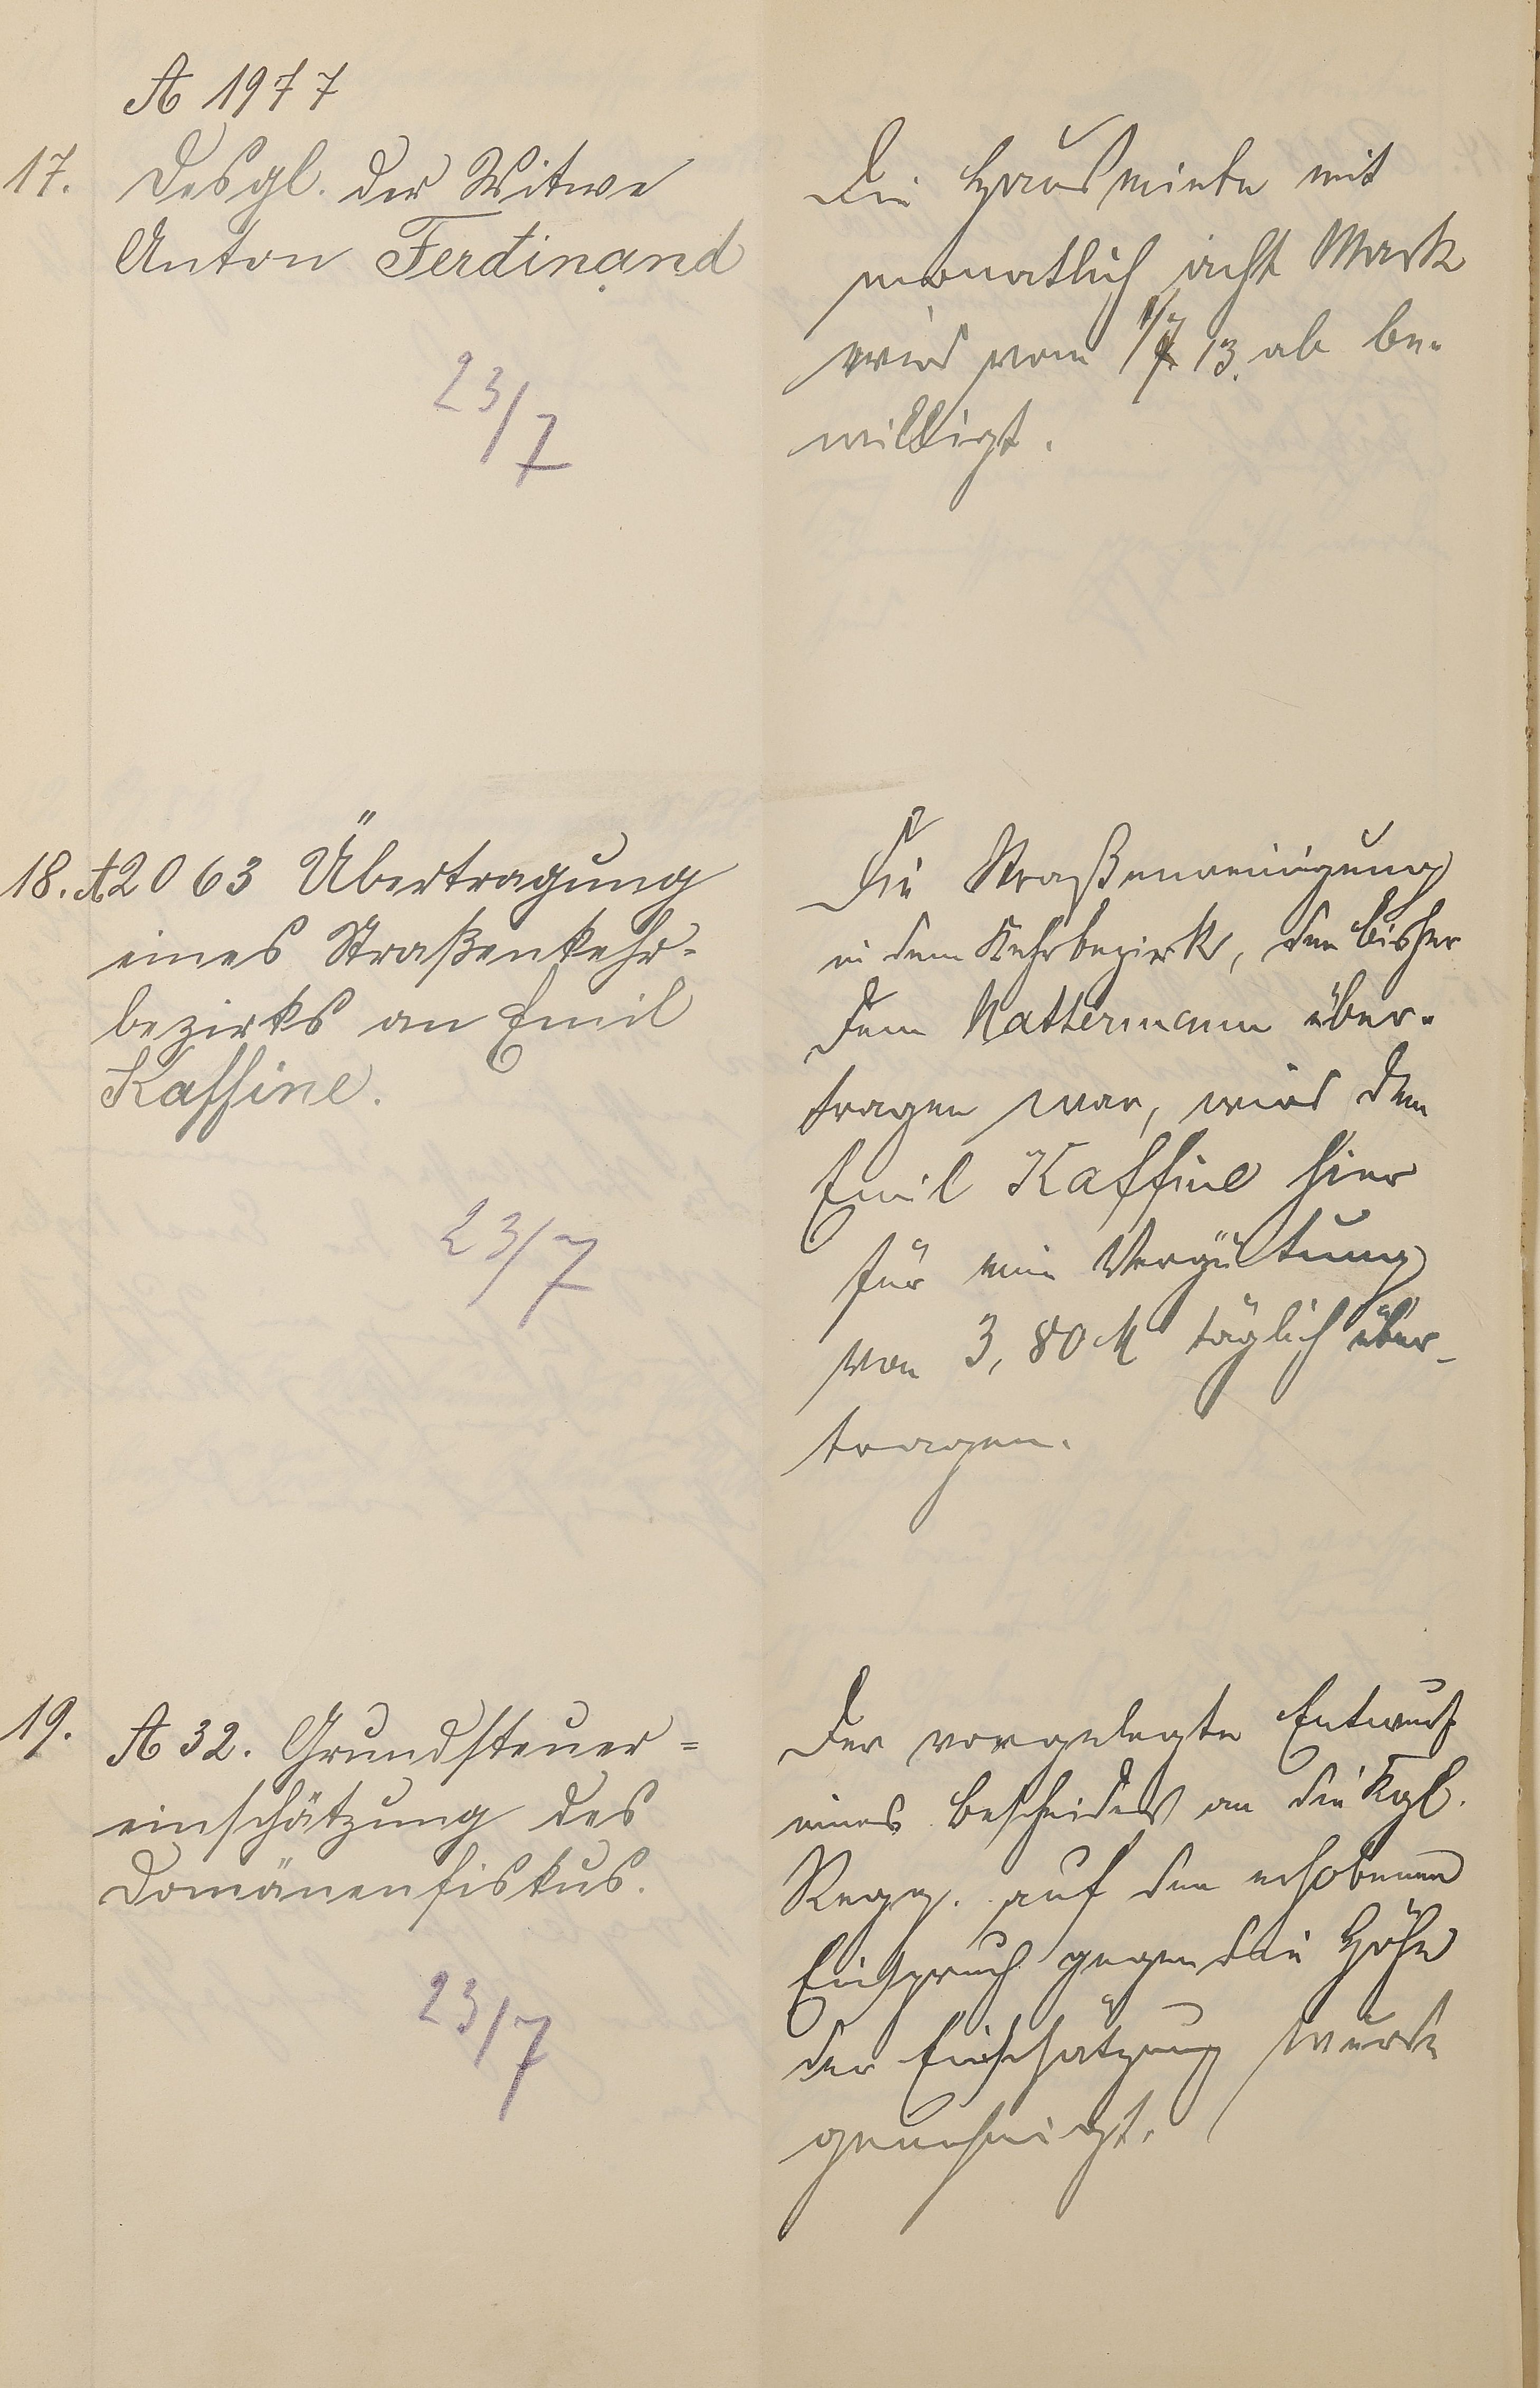 A 1977
17. Desgl. der Witwe
Anton Ferdinand
23/7
Die Hausmiete mit
monatlich acht Mark
wird vom 1/7 13. ab be-
willigt.
18. A2063 Übertragung
eines Straßenkehr-
bezirks an Emil
Kaffine.
23/7
Die Straßenreinigung
in dem Kehrbezirk, der bisher
dem Kattermann über-
tragen war, wird dem
Emil Kaffine hier
für eine Vergütung
von 3,80 M täglich über-
tragen.
19. A 32. Grundsteuer=
einschätzung des
Domänenfiskus.
23/7
Der vorgelegte Entwurf
eines Bescheides an die Kgl.
Regg. auf den erhobenen
Einspruch gegen die Höhe
der Einschätzung wurde
genehmigt.